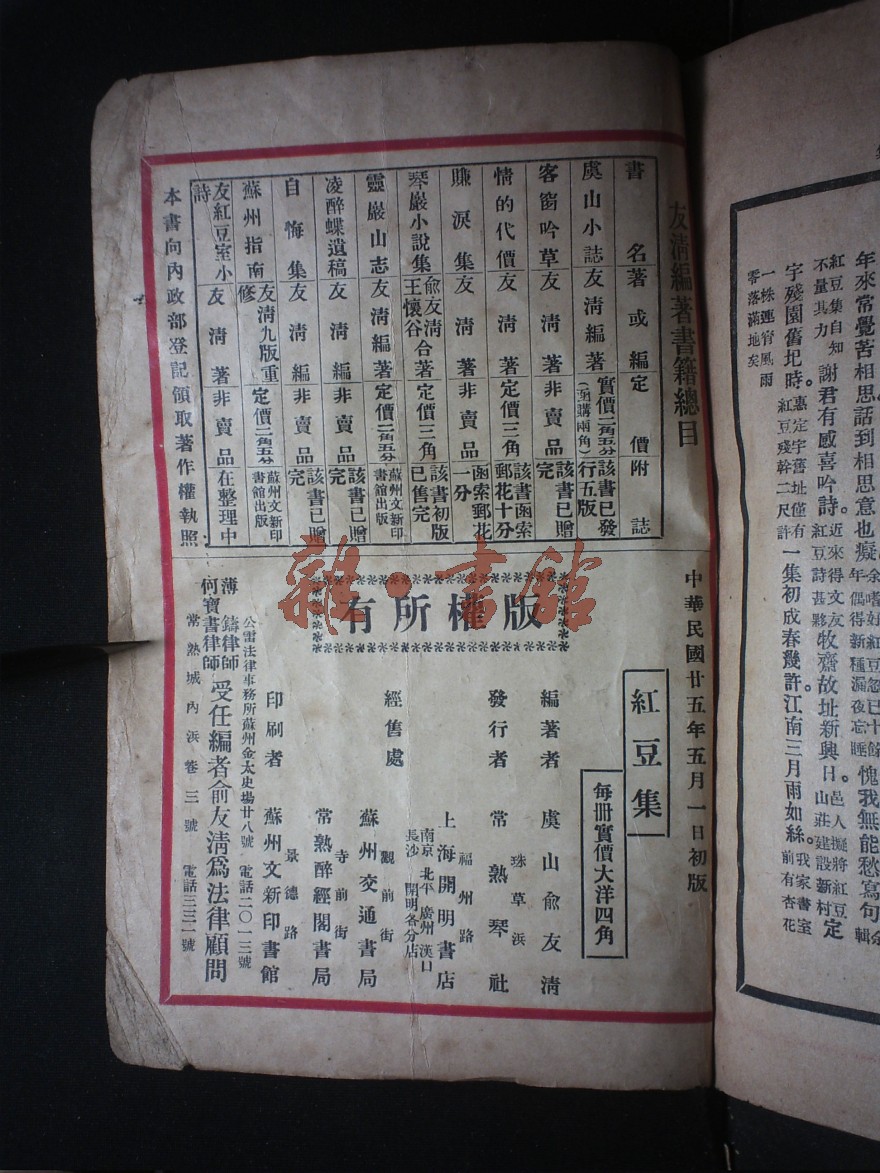 年來常覺苦相思話到相思意也癡
愧我無能愁寫句
紅豆集自知
不量其力
謝君有感喜吟詩。
近來得文友
紅豆詩甚夥
牧齋故址新興日。
邑人擬將紅豆
山莊建設新村
定
字殘園舊圯時。
惠定宇舊址僅有
紅豆殘幹二尺許
一集初成春幾許。江南三月雨如絲。
我家書室
前有杏花
一株連宵風雨
零落滿地矣
友清編著書籍總目
書名 著或編 定價 附誌
虞山小誌 友清編著 實價二角五分(函購兩角) 該書已發行五版
客窗吟草 友清著 非賣品 該書已贈完
情的代價 友清著 定價三角 該書函索郵花十分
賺淚集 友清著 非賣品 函索郵花一分
琴嚴小說集 俞友清王懷谷合著 定價三角 該書初版已售完
靈嚴山志 友清編著 定價二角五分 蘇州文新印書館出版
凌醉蝶遺稿 友清編 非賣品 該書已贈完
自悔集 友清著 非賣品 該書已贈完
蘇州指南 友清九版重修 定價二角五分 蘇州文新印書館出版
友紅豆室小詩 友清著 非賣品 在整理中
本書向內政部登記領取著作權執照
中華民國廿五年五月一日初版
紅豆集
每冊實價大洋四角
版權所有
編著者 虞山俞友清
發行者 珠草浜 常熟琴社
經售處 福州路 上海開明書店
南京 北平 廣州 漢口
長沙 開明各分店
觀前街 蘇州交通書局
寺前街 常熟醉經閣書局
印刷者 景德路 蘇州文新印書館
公雷法律事務所蘇州金太史場廿八號 電話二〇一三號
薄鑄律師
何寶書律師
受任編者俞友清爲法律顧問
常熟城內浜巷三號 電話三三一號
雜·書館